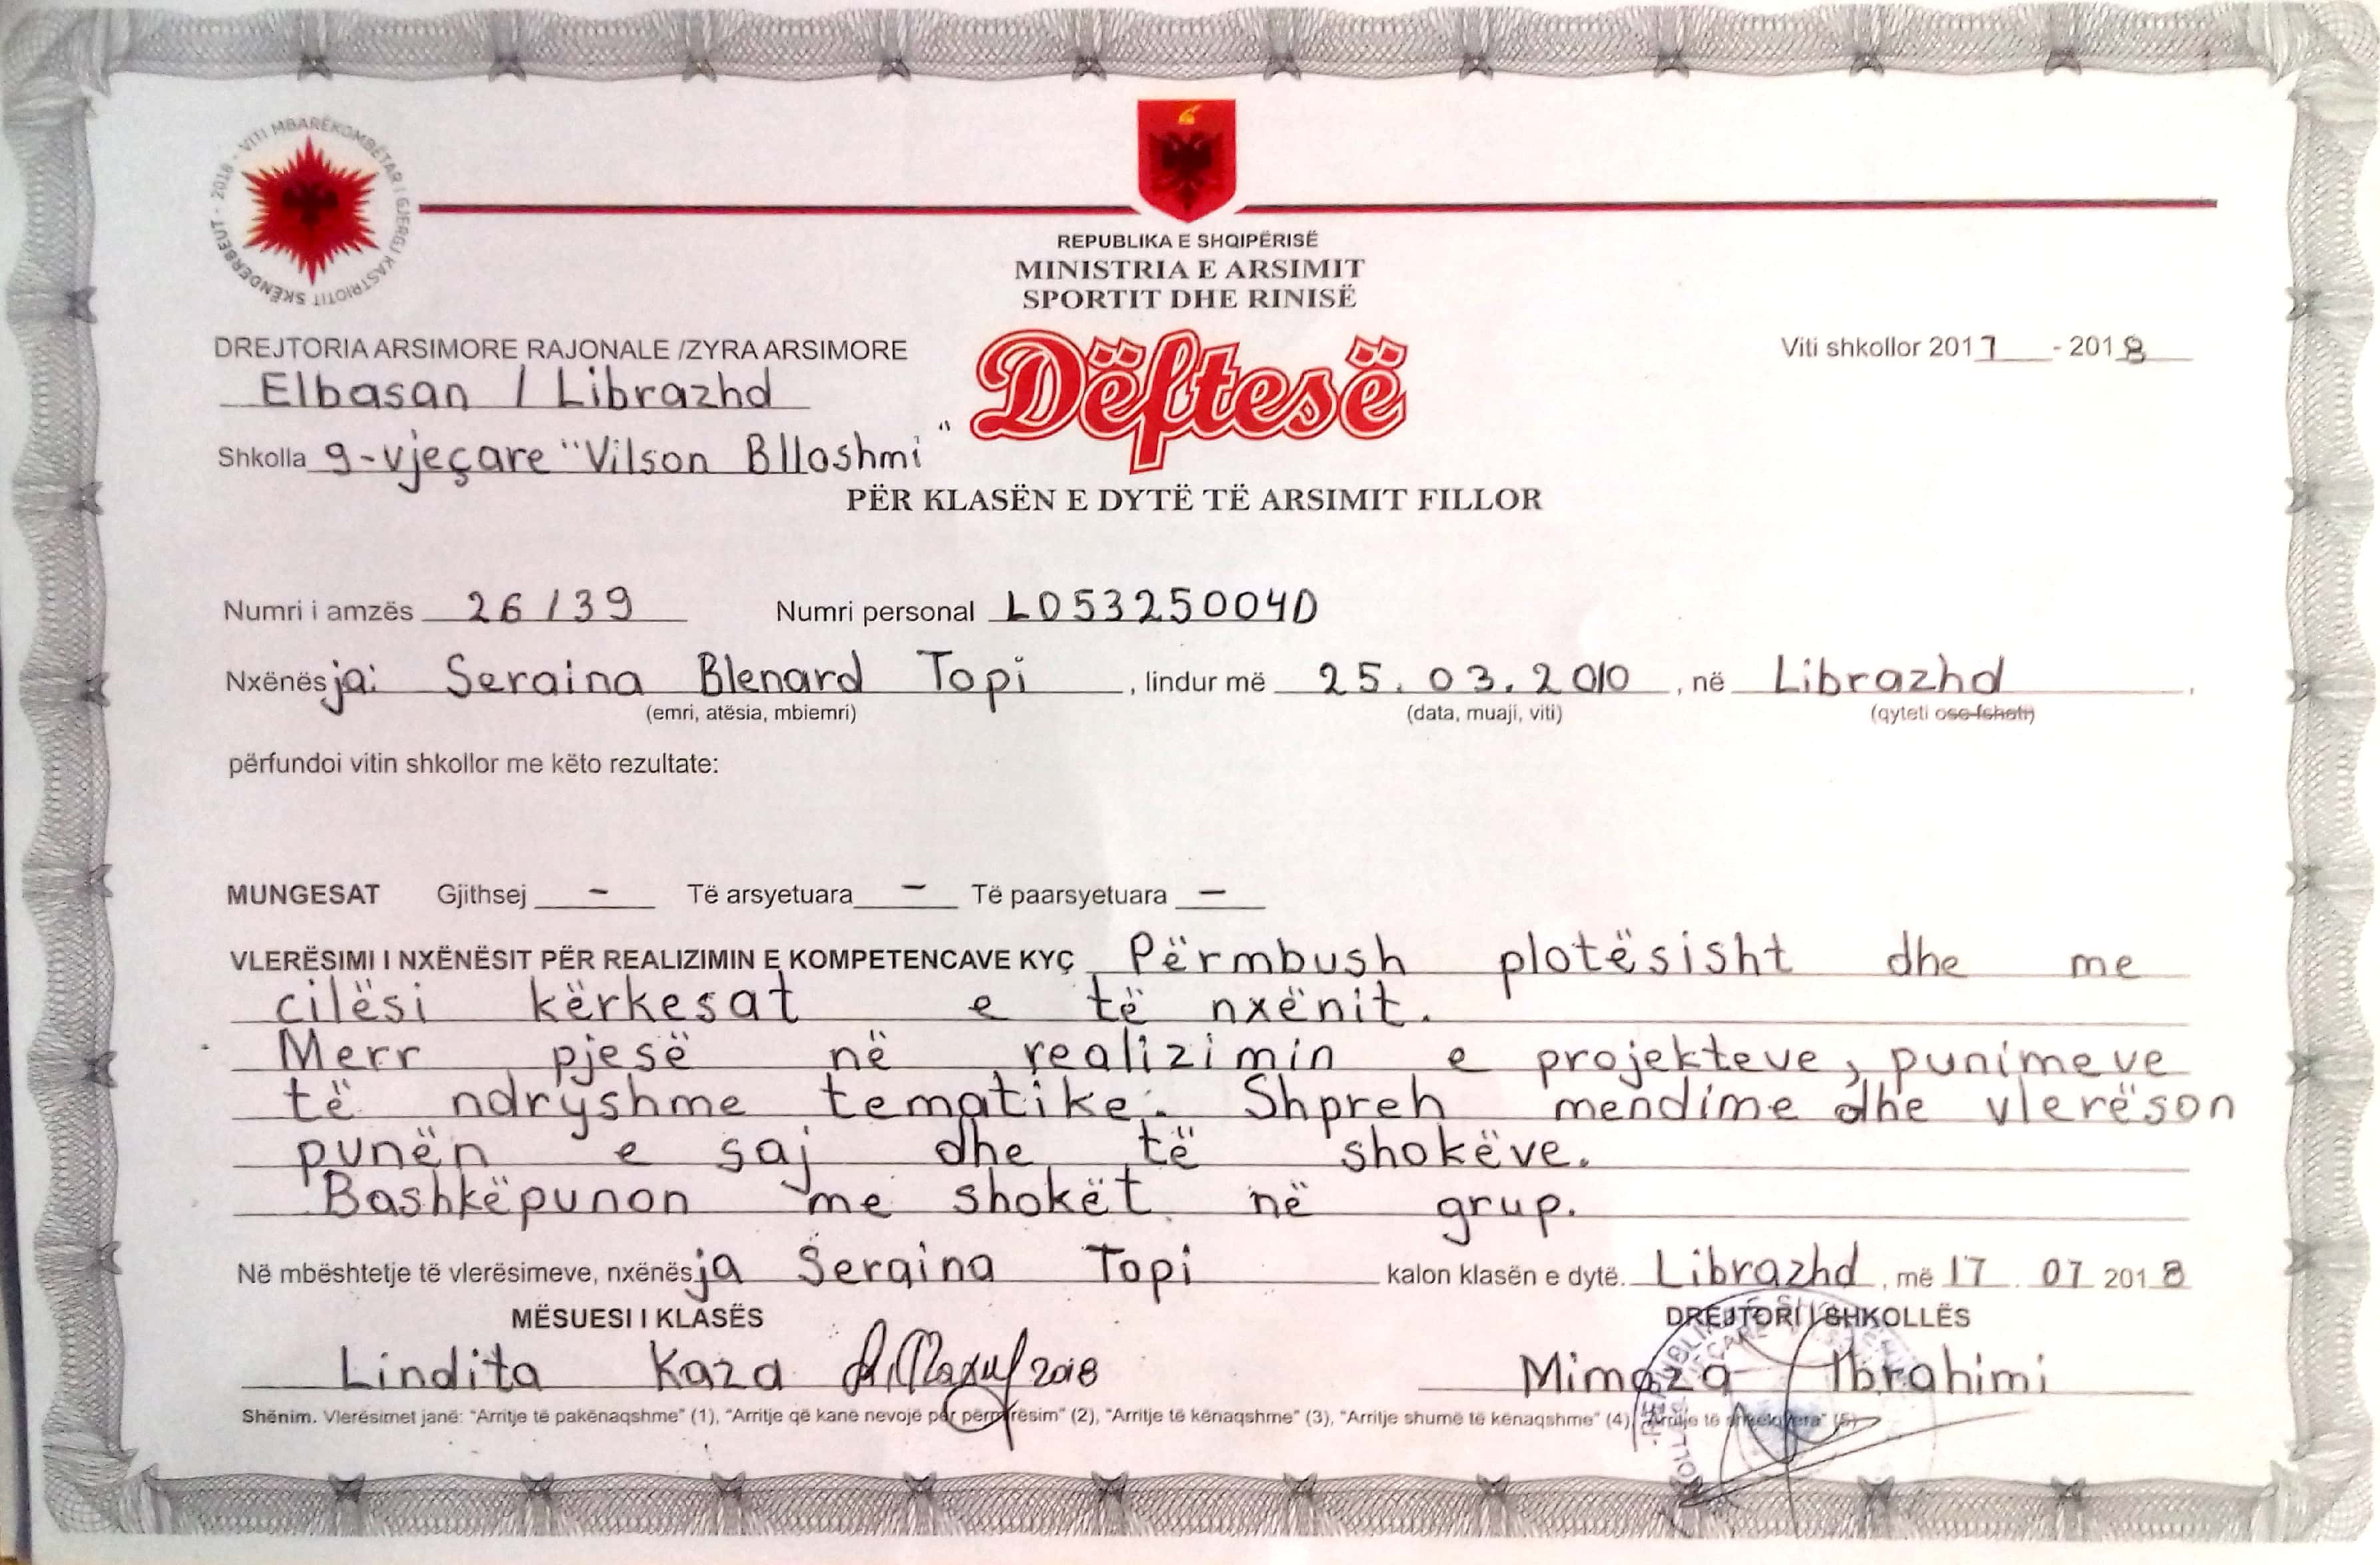 2018 - VITI MBARËKOMBËTAR I GJERGJ KASTRIOTIT SKËNDERBEUT
REPUBLIKA E SHQIPËRISË
MINISTRIA E ARSIMIT
SPORTIT DHE RINISË
DREJTORIA ARSIMORE RAJONALE /ZYRA ARSIMORE
Elbasan / Librazhd
Dëftesë
Viti shkollor 2017 - 2018
Shkolla 9-vjeçare "Vilson Blloshmi"
PËR KLASËN E DYTË TË ARSIMIT FILLOR
Numri i amzës 26/39 Numri personal L05325004D
Nxënësja: Seraina Blenard Topi, lindur më 25.03.2010, në Librazhd,
(emri, atësia, mbiemri) (data, muaji, viti) (qyteti ose fshati)
përfundoi vitin shkollor me këto rezultate:
MUNGESAT Gjithsej - Të arsyetuara - Të paarsyetuara -
VLERËSIMI I NXËNËSIT PËR REALIZIMIN E KOMPETENCAVE KYÇ Përmbush plotësisht dhe me
cilësi kërkesat e të nxënit.
Merr pjesë në realizimin e projekteve, punimeve
të ndryshme tematike. Shpreh mendime dhe vlerëson
punën e saj dhe të shokëve.
Bashkëpunon me shokët në grup.
Në mbështetje të vlerësimeve, nxënësja Seraina Topi kalon klasën e dytë. Librazhd, më 17.07 2018
MËSUESI I KLASËS DREJTORI I SHKOLLËS
Lindita Kaza 2018 Mimoza Ibrahimi
Shënim. Vlerësimet janë: "Arritje të pakënaqshme" (1), "Arritje që kanë nevojë për përmirësim" (2), "Arritje të kënaqshme" (3), "Arritje shumë të kënaqshme" (4), "Arritje të shkëlqyera" (5)